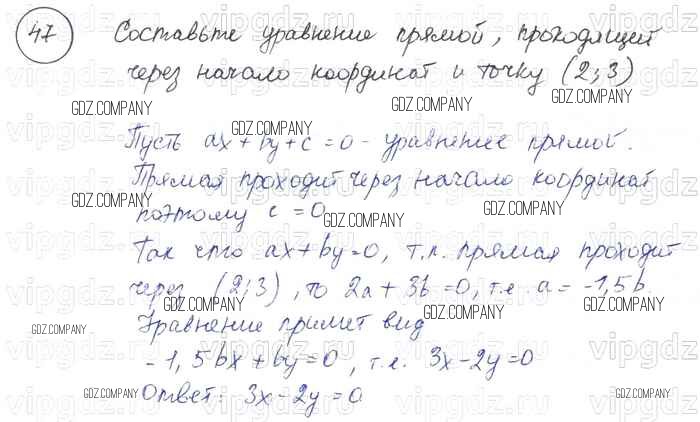 47 Составьте уравнение прямой, проходящей
через начало координат и точку (2;3)
GDZ.COMPANY GDZ.COMPANY GDZ.COMPANY
Пусть ax + by + c = 0 - уравнение прямой.
GDZ.COMPANY GDZ.COMPANY
Прямая проходит через начало координат
GDZ.COMPANY GDZ.COMPANY
поэтому c = 0
GDZ.COMPANY
Так что ax + by = 0, т.к. прямая проходит
через (2;3), то 2a + 3b = 0, т.е. a = -1,5b.
GDZ.COMPANY GDZ.COMPANY GDZ.COMPANY
Уравнение примет вид
GDZ.COMPANY
-1,5bx + by = 0, т.е. 3x - 2y = 0
GDZ.COMPANY GDZ.COMPANY GDZ.COMPANY GDZ.COMPANY
Ответ: 3x - 2y = 0
vipgdz.ru